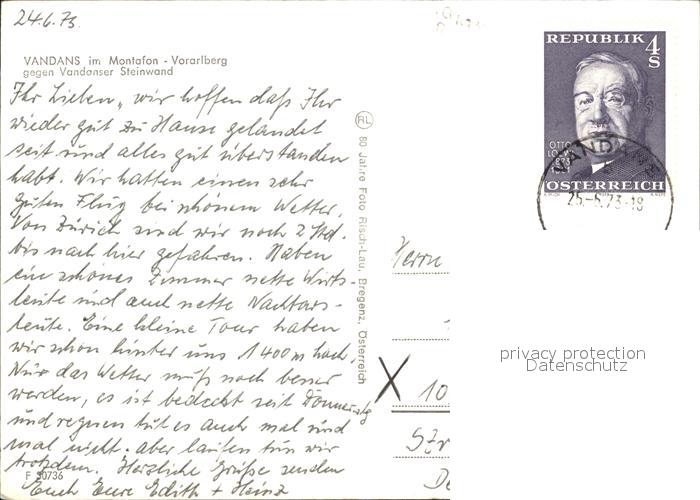 24.6.73.
VANDANS im Montafon - Vorarlberg
gegen Vandanser Steinwand
Ihr Lieben, wir hoffen daß Ihr
wieder gut zu Hause gelandet
seit und alles gut überstanden
habt. Wir hatten einen sehr
guten Flug bei schönem Wetter.
Von Zürich sind wir noch 2 Std.
bis nach hier gefahren. Haben
ein schönes Zimmer nette Wirts-
leute und auch nette Nachbars-
leute. Eine kleine Tour haben
wir schon hinter uns 1400 m hoch.
Nur das Wetter muß noch besser
werden, es ist bedeckt seit Donnerstg
und regnen tut es auch mal und
mal nicht. aber laufen tun wir
trotzdem. Herzliche Grüße senden
Euch Eure Edith + Heinz
F 50736
RL
80 Jahre Foto Risch-Lau, Bregenz, Österreich
REPUBLIK 4 S
OTTO
LOEWI
1873
1961
ÖSTERREICH
VANDANS
25.-6.73-18
Herrn
X 10
privacy protection
Datenschutz